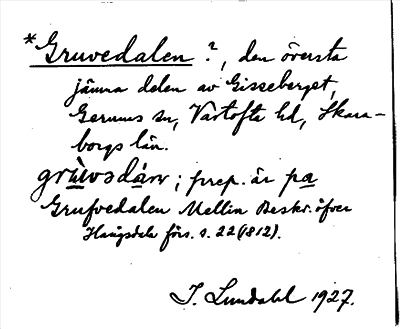 *Gruvedalen?, den översta
jämna delen av Gisseberget,
Gerums sn, Vartofta hd, Skara-
borgs län.
grùwsdárv; prep. är pa
Grufvedalen Mellin Beskr. öfver
Hangsdala förs. s. 22 (1812).
J. Lundahl 1927.